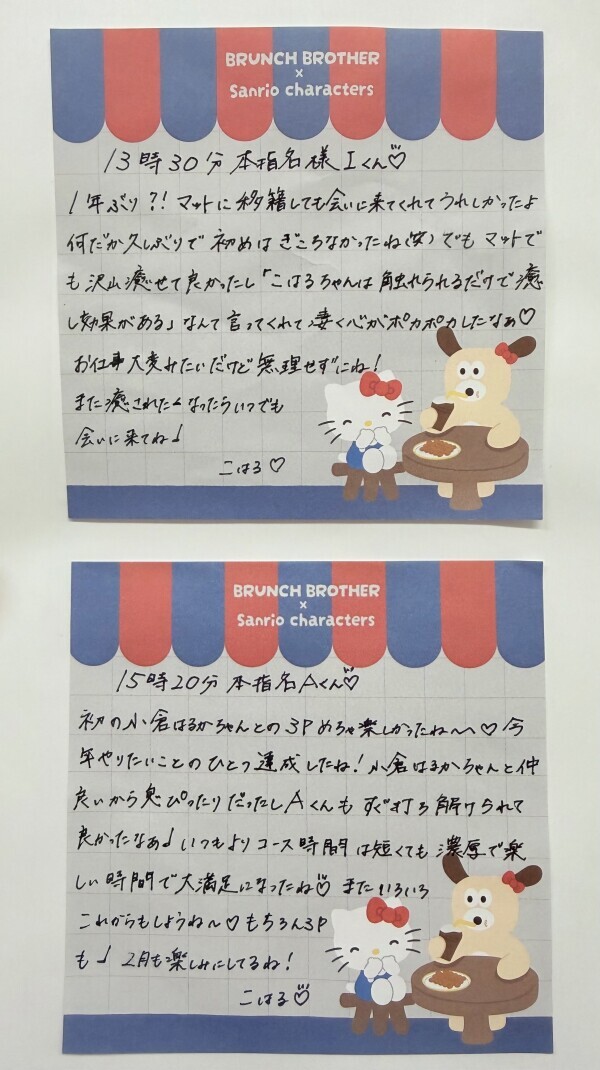 BRUNCH BROTHER
×
Sanrio characters
13時30分 本指名様 Iくん♡
1年ぶり?! マットに移籍しても会いに来てくれてうれしかったよ
何だか久しぶりで初めはぎこちなかったね(笑) でもマットで
も沢山癒せて良かったし「こはるちゃんは触れられるだけで癒
し効果がある」なんて言ってくれて凄く心がポカポカしたなぁ♡
お仕事大変みたいだけど無理せずにね!
また癒されたくなったらいつでも
会いに来てね♩
こはる♡
BRUNCH BROTHER
×
Sanrio characters
15時20分 本指名Aくん♡
初の小倉はるかちゃんとの3Pめちゃ楽しかったね〜♡ 今
年やりたいことのひとつ達成したね! 小倉はるかちゃんと仲
良いから息ぴったりだったしAくんもすぐ打ち解けられて
良かったなぁ♩ いつもよりコース時間は短くても濃厚で楽
しい時間で大満足になったね♡ またいろいろ
これからもしようね〜♡ もちろん3P
も♩ 2月も楽しみにしてるね!
こはる♡